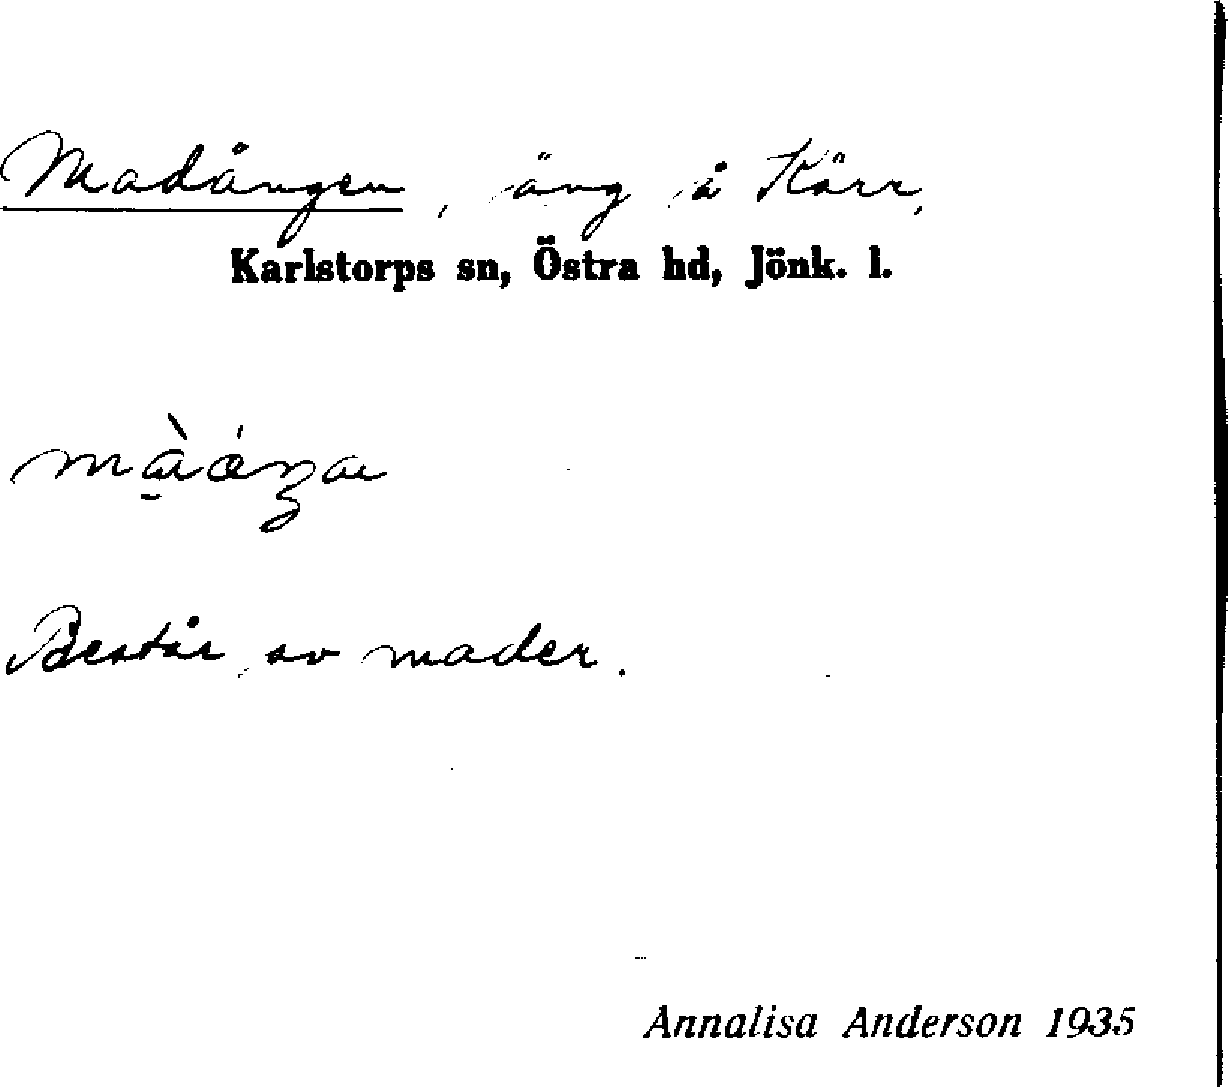 Madängen, äng å Kärr,
Karlstorps sn, Östra hd, Jönk. l.
Består av mader.
Annalisa Anderson 1935